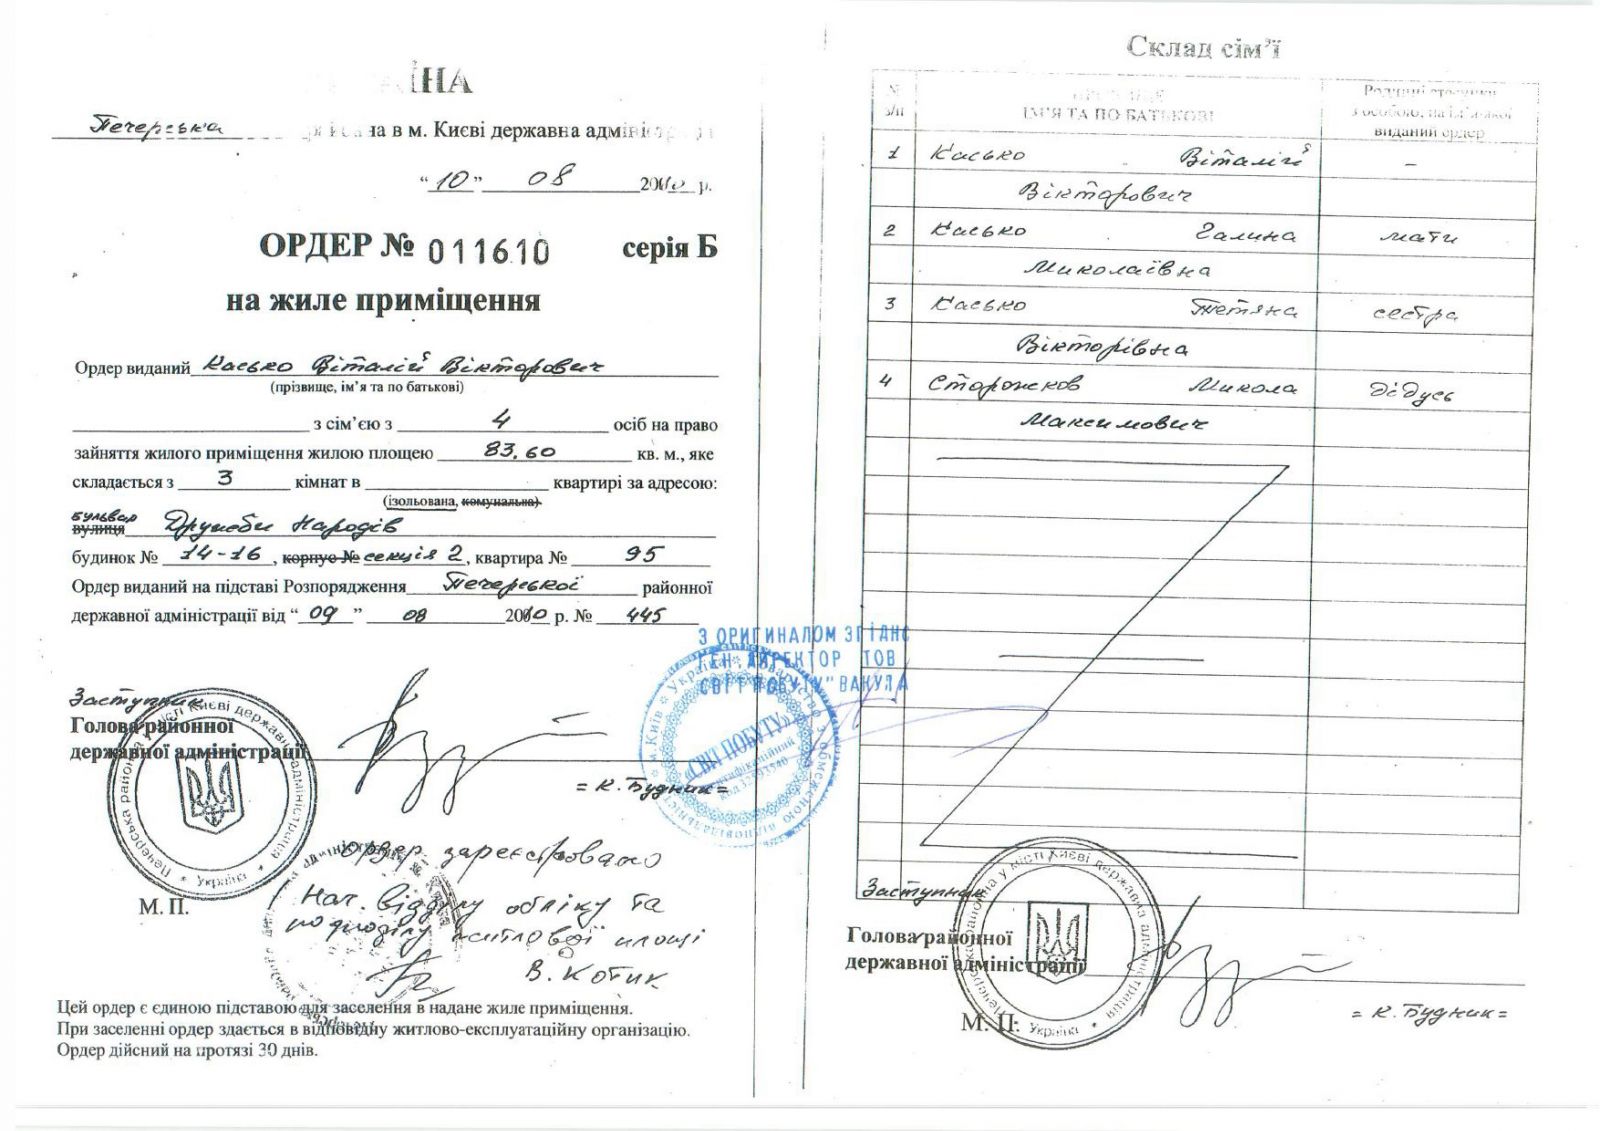 Печерська районна в м. Києві державна адміністрація
“ 10 ” 08 2010 р.
ОРДЕР № 011610 серія Б
на жиле приміщення
Ордер виданий Касько Віталій Вікторович
(прізвище, ім’я та по батькові)
з сім’єю з 4 осіб на право
зайняття жилого приміщення жилою площею 83.60 кв. м., яке
складається з 3 кімнат в квартирі за адресою:
(ізольована, комунальна)
бульвар
вулиця Дружби Народів
будинок № 14-16, корпус № секція 2, квартира № 95
Ордер виданий на підставі Розпорядження Печерської районної
державної адміністрації від “ 09 ” 08 2010 р. № 445
З ОРИГИНАЛОМ ЗГІДНО
ГЕН. ДИРЕКТОР ТОВ
"СВІТ ПОБУТУ" ВАКУЛА
Заступник
Голова районної
державної адміністрації
= К. Будник =
Печерська районна у місті Києві державна адміністрація * Україна *
м. Київ * Україна * Товариство з обмеженою відповідальністю
«СВІТ ПОБУТУ»
М. П.
Ордер зареєстровано
Нач. відділу обліку та
розподілу житлової площі
В. Котик
Цей ордер є єдиною підставою для заселення в надане жиле приміщення.
При заселенні ордер здається в відповідну житлово-експлуатаційну організацію.
Ордер дійсний на протязі 30 днів.
Склад сім’ї
№ з/п
ІМ’Я ТА ПО БАТЬКОВІ
Родинні стосунки
з особою, на ім’я якої
виданий ордер
1 Касько Віталій –
Вікторович
2 Касько Галина мати
Миколаївна
3 Касько Тетяна сестра
Вікторівна
4 Сторожков Микола дідусь
Максимович
Заступник
Голова районної
державної адміністрації
= К. Будник =
М. П.
Печерська районна у місті Києві державна адміністрація * Україна *